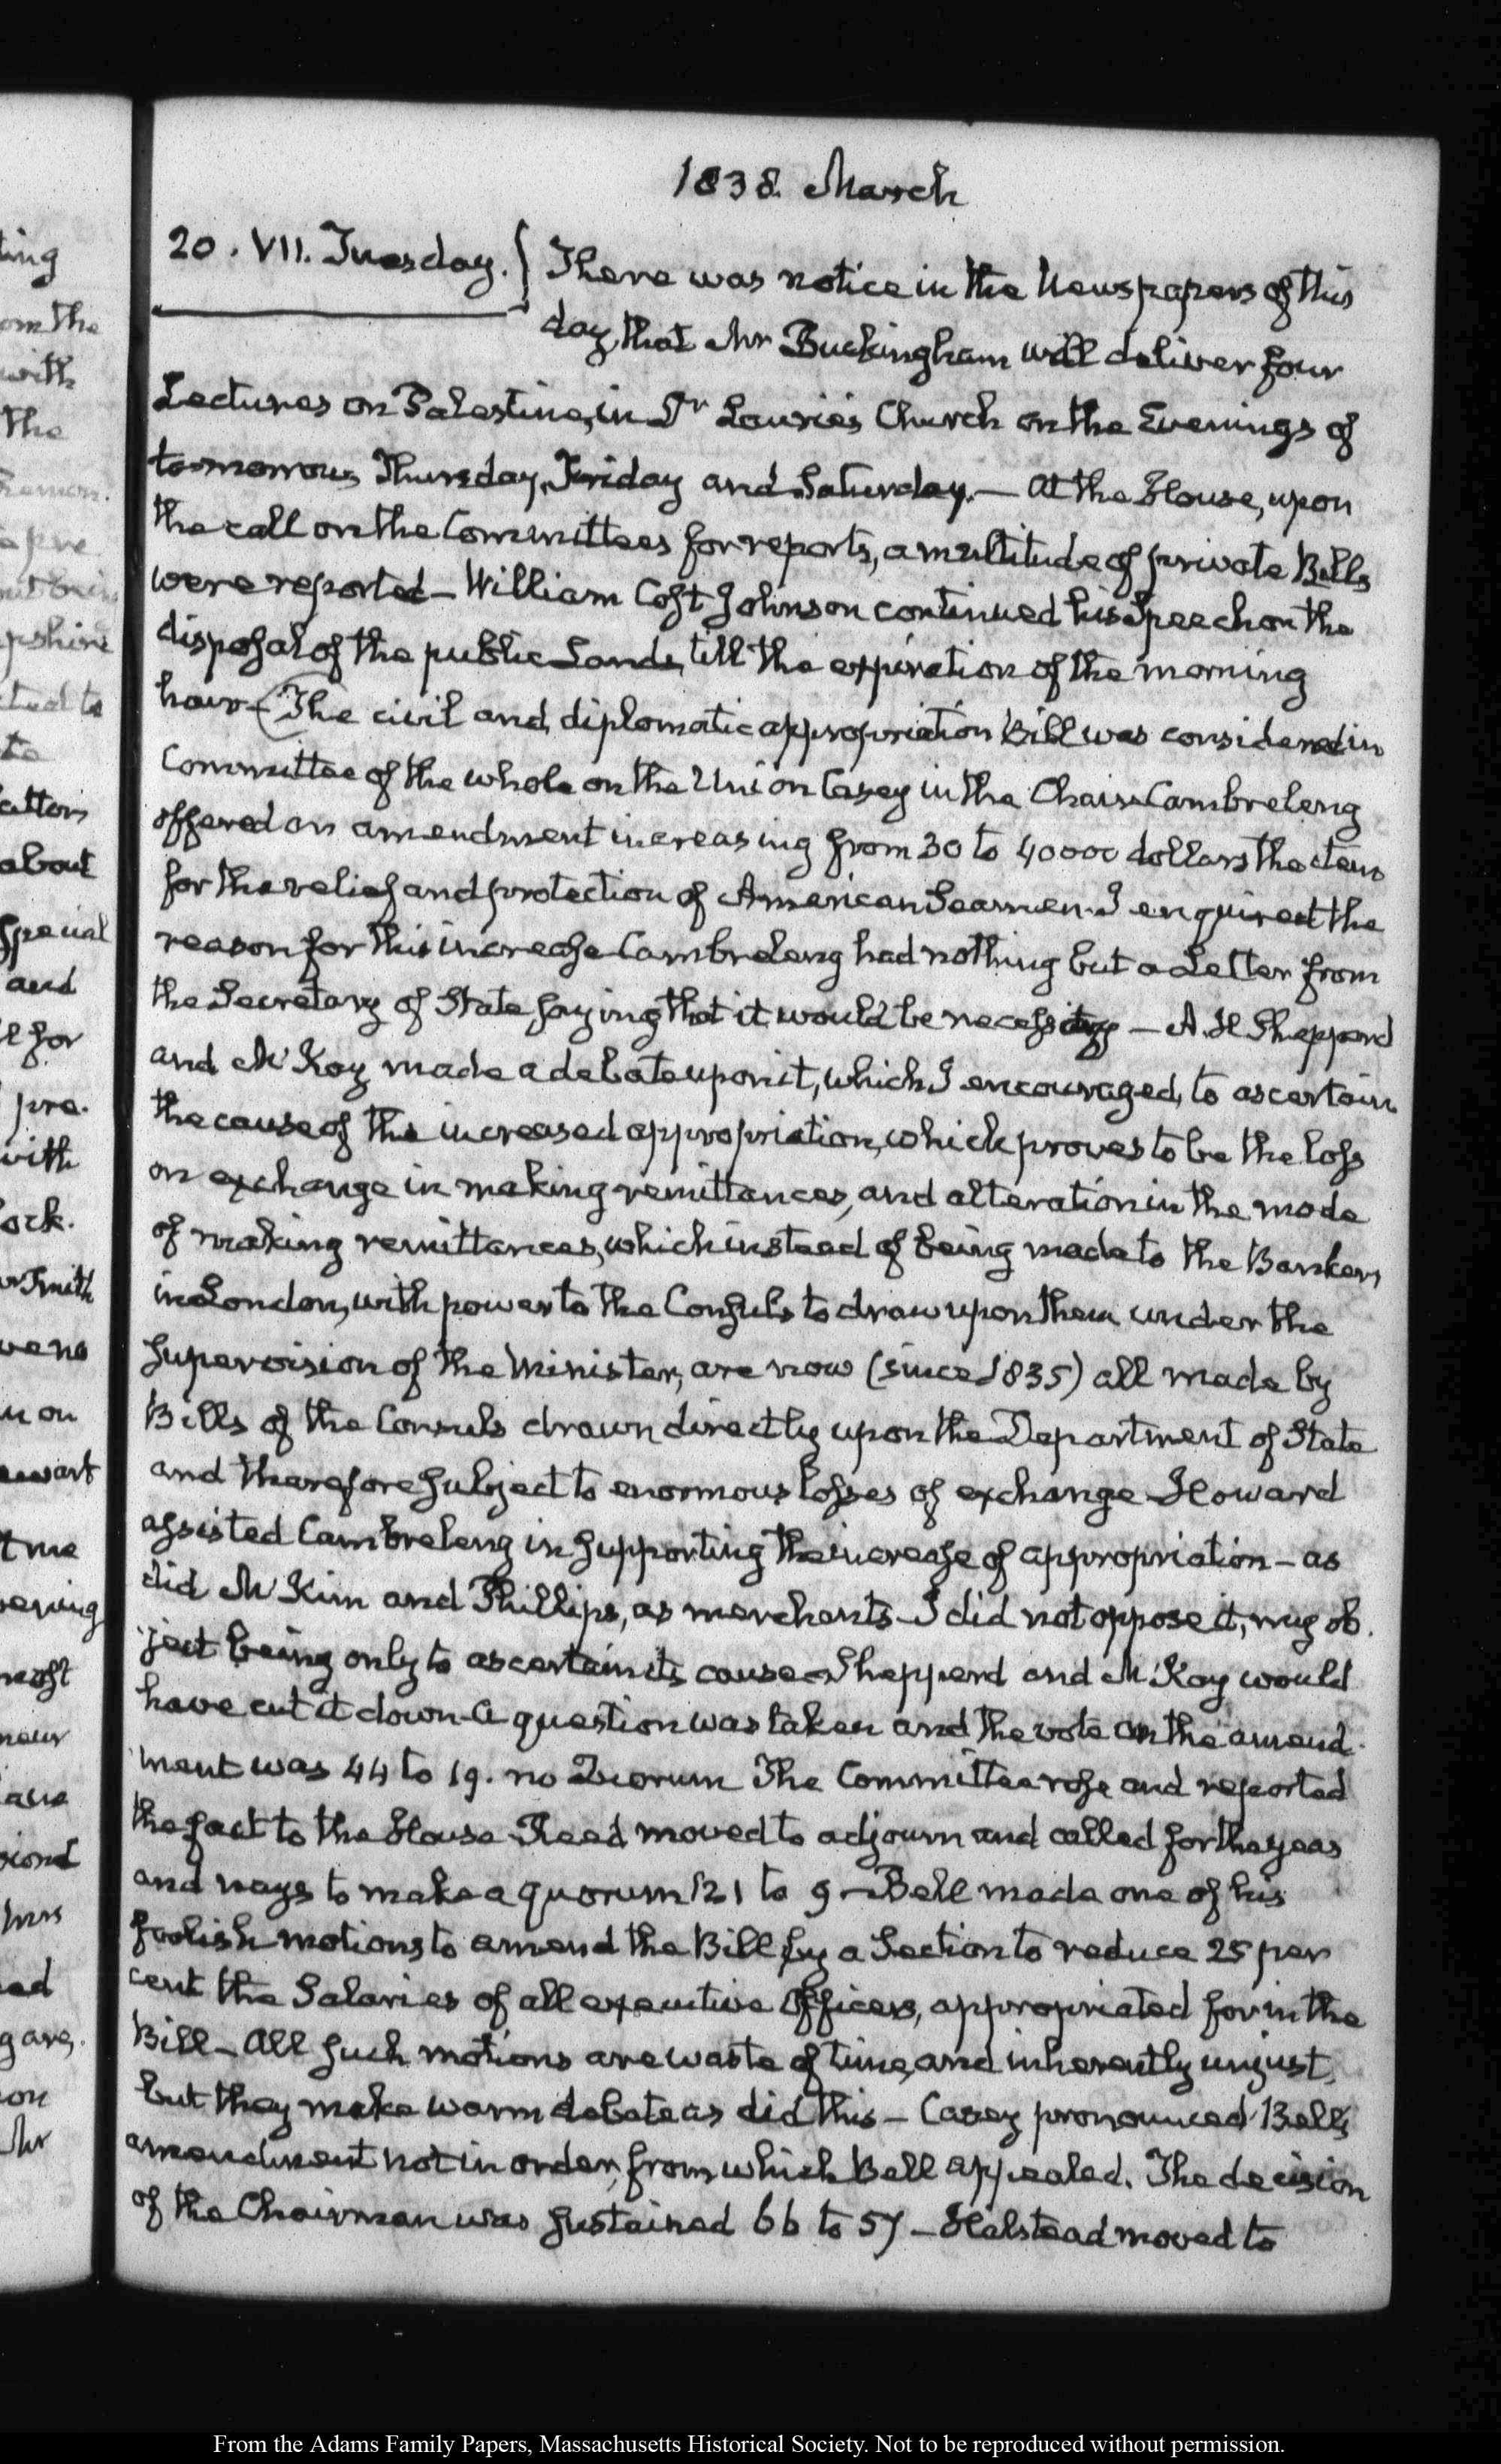 1838. March
20. VII. Tuesday. There was notice in the Newspapers of this
day, that Mr Buckingham will deliver four
Lectures on Palestine, in Dr Laurie's Church on the Evenings of
to-morrow, Thursday, Friday and Saturday.— At the House, upon
the call on the Committees for reports, a multitude of private Bills
were reported— William Cost Johnson continued his Speech on the
disposal of the public Lands, till the expiration of the morning
hour— The civil and diplomatic appropriation Bill was considered in
Committee of the whole on the Union Casey in the Chair. Cambreleng
offered an amendment increasing from 30 to 40000 dollars the item
for the relief and protection of American Seamen. I enquired the
reason for this increase Cambreleng had nothing but a Letter from
the Secretary of State saying that it would be necessary — A. H Shepperd
and McKay made a debate upon it, which I encouraged, to ascertain
the cause of the increased appropriation, which proves to be the loss
on exchange in making remittances, and alteration in the mode
of making remittances, which instead of being made to the Bankers
in London, with power to the Consuls to draw upon them under the
supervision of the Minister, are now (since 1835) all made by
Bills of the Consuls drawn directly upon the Department of State
and therefore subject to enormous losses of exchange— Howard
assisted Cambreleng in supporting the increase of appropriation— as
did McKim and Phillips, as merchants— I did not oppose it, my ob-
ject being only to ascertain its cause— Shepperd and McKay would
have cut it down— A question was taken and the vote on the amend-
ment was 44 to 19. no Quorum The Committee rose and reported
the fact to the House— Reed moved to adjourn and called for the yeas
and nays to make a quorum 121 to 9— Bell made one of his
foolish motions to amend the Bill by a Section to reduce 25 per
cent the Salaries of all executive Officers, appropriated for in the
Bill— All such motions are waste of time, and inherently unjust,
but they make warm debate as did this— Casey pronounced Bell's
amendment not in order, from which Bell appealed. The decision
of the Chairman was sustained 66 to 57— Halstead moved to
ting
om the
with
the
pshire
to
about
special
and
for
pre-
with
Smith
u on
t me
most
and
ed
on
Mr
From the Adams Family Papers, Massachusetts Historical Society. Not to be reproduced without permission.